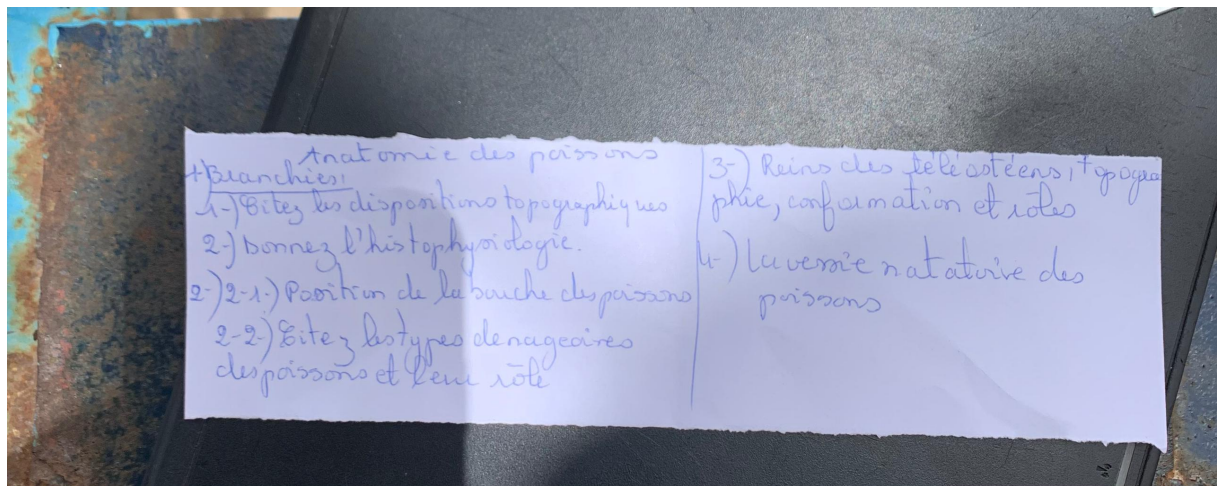 Anatomie des poissons
1) Branchies:
1-) Citez les dispositions topographiques
2-) Donnez l'histophysiologie.
2-) 2-1-) Position de la bouche des poissons
2-2-) Citez les types de nageoires
des poissons et leur rôle
3-) Reins des téléostéens, topogra
phie, conformation et rôles
4-) La vessie natatoire des
poissons